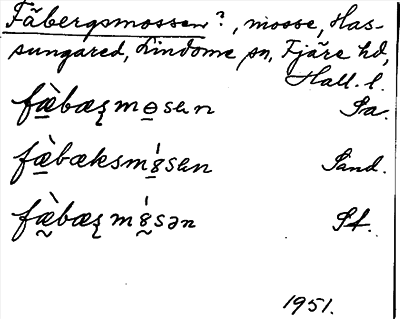 Fäbergsmossen?, mosse, Has-
sungared, Lindome sn, Fjäre hd,
Hall. l.
fæ̀bæʂmo̱sen Sa.
fæ̀bæksmǵsen Sand.
fæ̀bæʂmǵsən Sf.
1951.